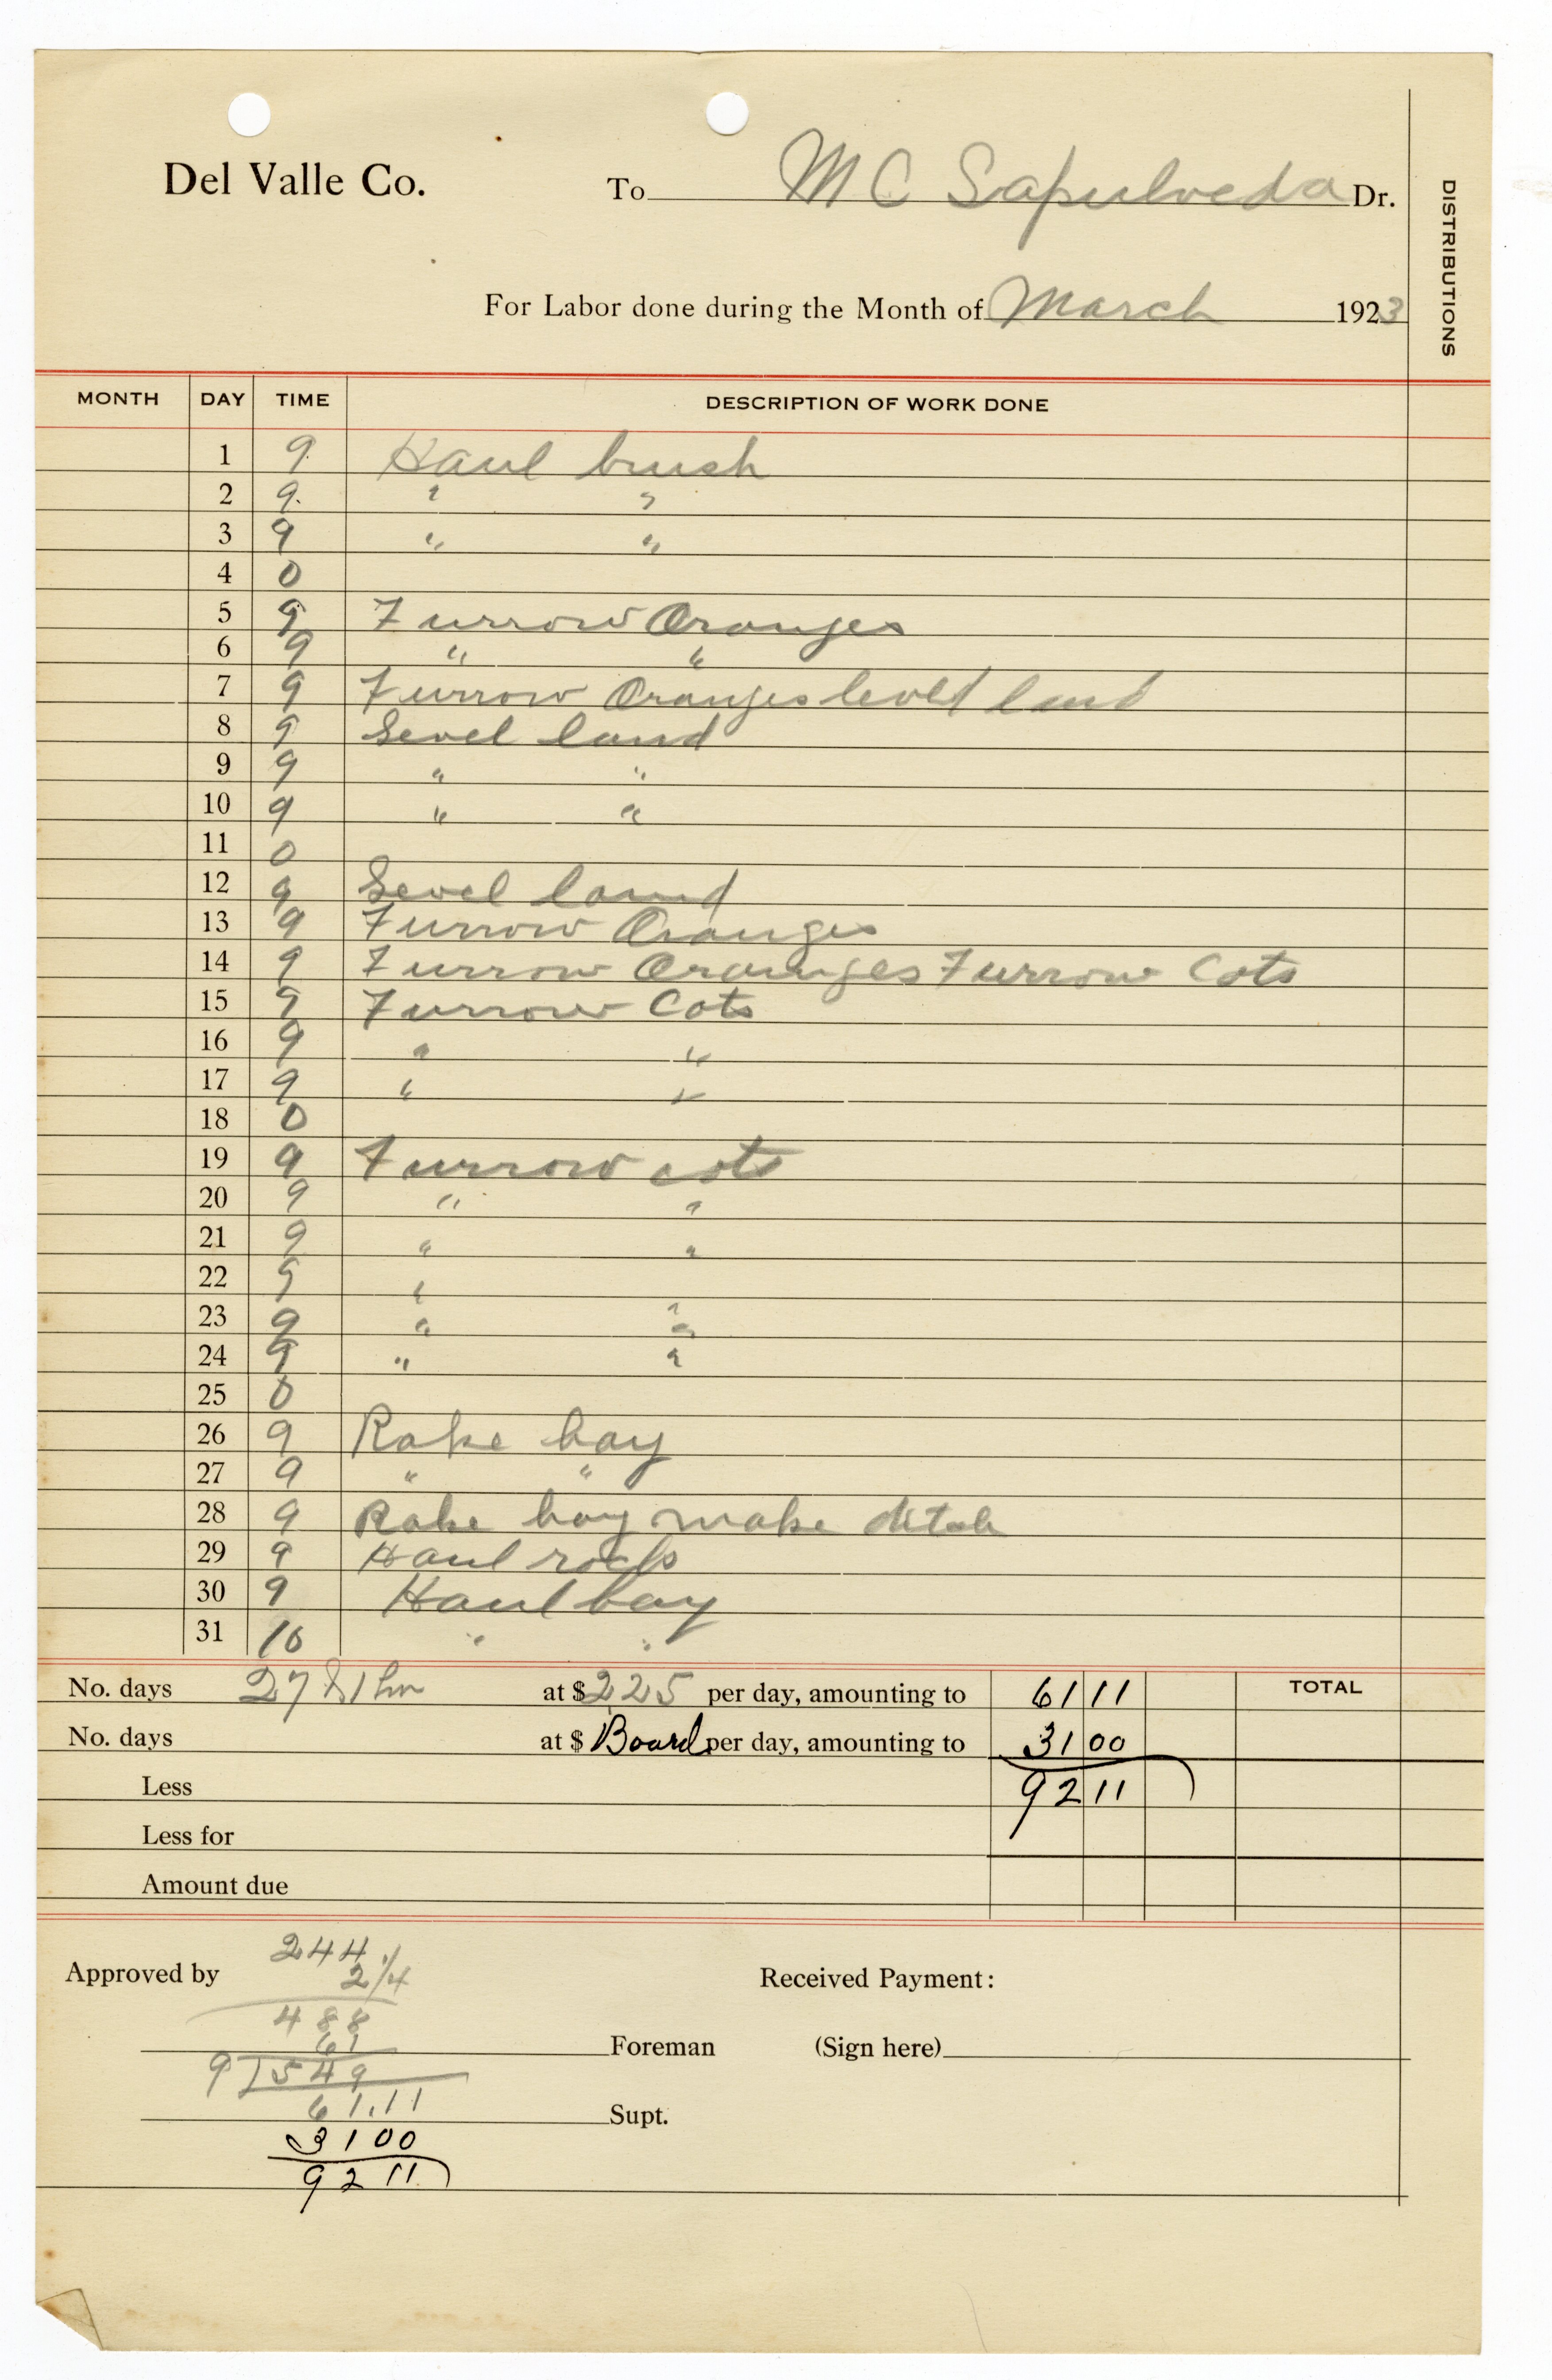 Del Valle Co. To M C Sapulveda Dr.
DISTRIBUTIONS
For Labor done during the Month of March 1923
MONTH DAY TIME DESCRIPTION OF WORK DONE
1 9 Haul brush
2 9. " "
3 9 " "
4 0
5 9 Furrow Oranges
6 9 " "
7 9 Furrow Oranges level land
8 9 Level land
9 9 " "
10 9 " "
11 0
12 9 Level land
13 9 Furrow Oranges
14 9 Furrow Oranges Furrow Cots
15 9 Furrow Cots
16 9 " "
17 9 " "
18 0
19 9 Furrow cots
20 9 " "
21 9 " "
22 9 " "
23 9 " "
24 9 " "
25 0
26 9 Rake hay
27 9 " "
28 9 Rake hay make ditch
29 9 Haul rocks
30 9 Haul hay
31 10 " "
No. days 27 & 1 hr at $ 225 per day, amounting to 61 11 TOTAL
No. days at $ Board per day, amounting to 31 00
Less 92 11
Less for
Amount due
244
Approved by 2 1/4 Received Payment:
488
61 Foreman (Sign here)
9 549
61.11 Supt.
3100
9211